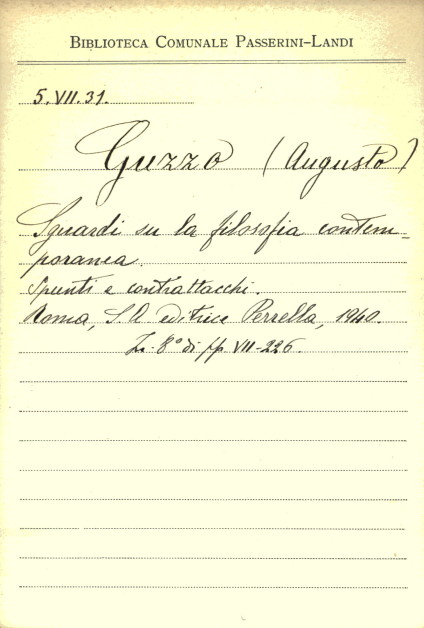 BIBLIOTECA COMUNALE PASSERINI-LANDI
5.VII.31.
Guzzo (Augusto)
Sguardi su la filosofia contem-
poranea.
Spunti e contrattacchi.
Roma, S. A. editrice Perrella, 1940.
In-8º di pp. VII-226.